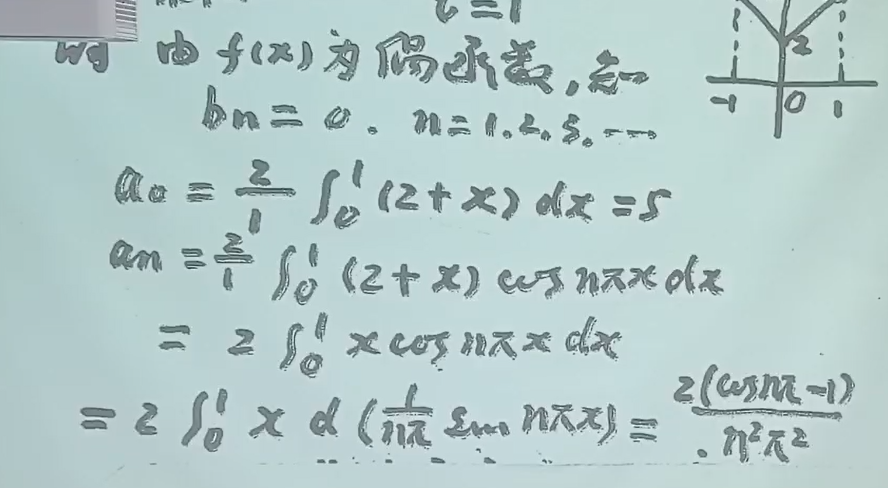 l=1
由 f(x) 为偶函数,知
2
-1 0 1
bn = 0. n = 1.2.3.…
a₀ = 2/1 ∫₀¹ (2+x) dx = 5
an = 2/1 ∫₀¹ (2+x) cos nπx dx
= 2 ∫₀¹ x cos nπx dx
= 2 ∫₀¹ x d (1/nπ sin nπx) = 2(cosnπ-1)/n²π²